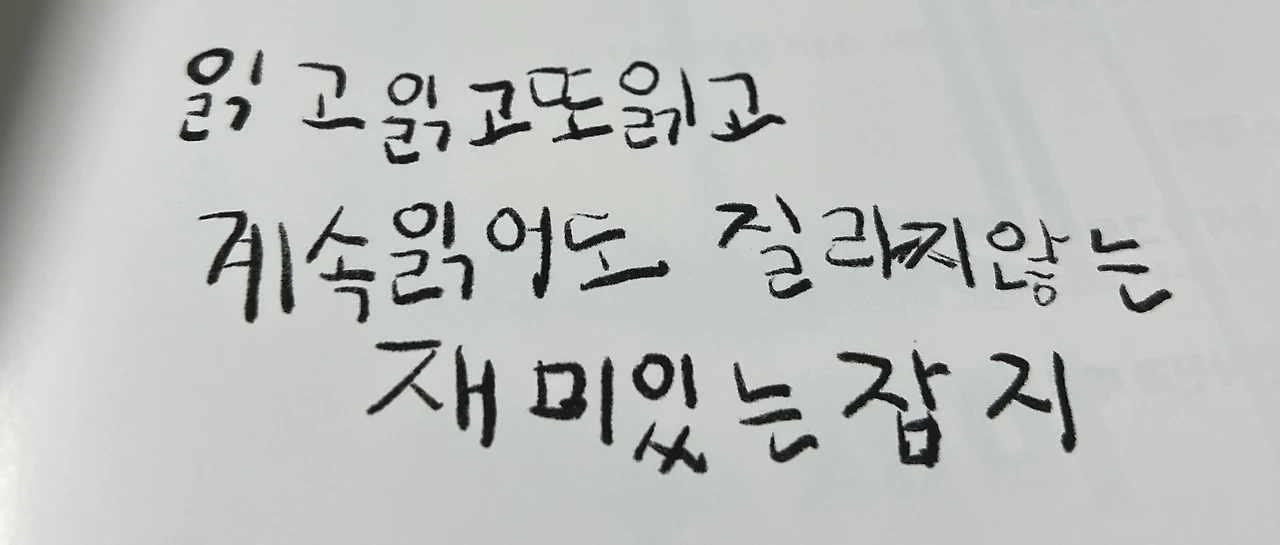 읽고 읽고 또 읽고
계속 읽어도 질라지 않는
재미있는 잡지